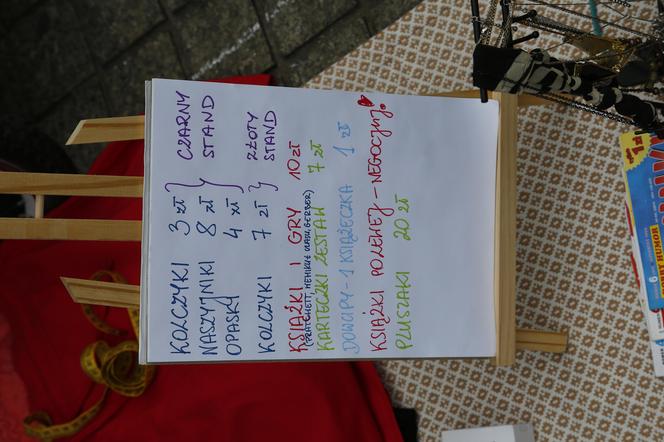 KOLCZYKI 3 zł } CZARNY
NASZYJNIKI 8 zł } STAND
OPASKI 4 zł
KOLCZYKI 7 zł } ZŁOTY STAND
KSIĄŻKI I GRY 10 zł
(PRATCHETT, MENKICH
KARTECZKI ZESTAW 7 zł
DOWCIPY - 1 KSIĄŻECZKA 1 zł
KSIĄŻKI PO LEWEJ - NEGOCJUJ!
PLUSZAKI 20 zł